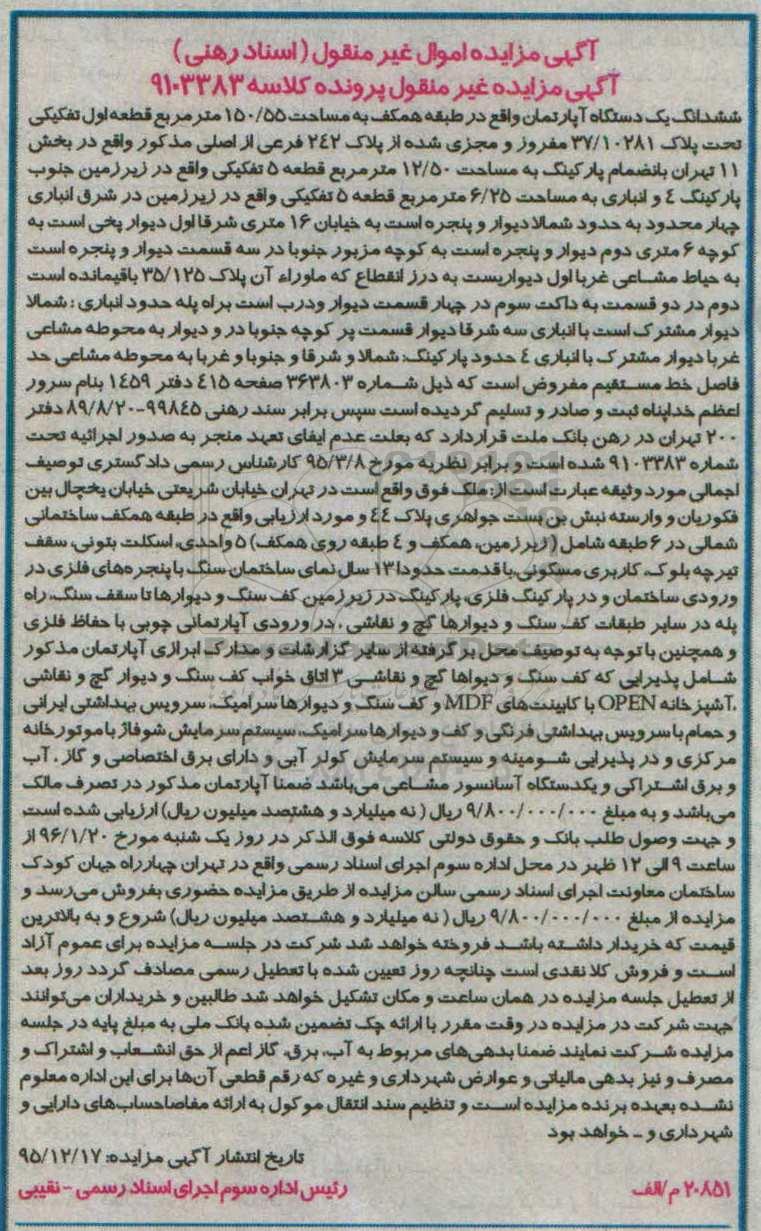 آگهی مزایده اموال غیر منقول (اسناد رهنی)
آگهی مزایده غیر منقول پرونده کلاسه ۹۱۰۳۳۸۳
ششدانگ یک دستگاه آپارتمان واقع در طبقه همکف به مساحت ۱۵۰/۵۵ متر مربع قطعه اول تفکیکی
تحت پلاک ۳۷/۱۰۲۸۱ مفروز و مجزی شده از پلاک ۲۴۲ فرعی از اصلی مذکور واقع در بخش
۱۱ تهران بانضمام پارکینگ به مساحت ۱۲/۵۰ مترمربع قطعه ۵ تفکیکی واقع در زیرزمین جنوب
پارکینگ ٤ و انباری به مساحت ۶/۲۵ مترمربع قطعه ۵ تفکیکی واقع در زیرزمین در شرق انباری
چهار محدود به حدود شمالا دیوار و پنجره است به خیابان ۱۶ متری شرقا اول دیوار پخی است به
کوچه ۶ متری دوم دیوار و پنجره است به کوچه مزبور جنوبا در سه قسمت دیوار و پنجره است
به حیاط مشاعی غربا اول دیواریست به درز انقطاع که ماوراء آن پلاک ۳۵/۱۲۵ باقیمانده است
دوم در دو قسمت به داکت سوم در چهار قسمت دیوار ودرب است براه پله حدود انباری : شمالا
دیوار مشترک است با انباری سه شرقا دیوار قسمت پر کوچه جنوبا در و دیوار به محوطه مشاعی
غربا دیوار مشترک با انباری ٤ حدود پارکینگ: شمالا و شرقا و جنوبا و غربا به محوطه مشاعی حد
فاصل خط مستقیم مفروض است که ذیل شماره ۳۶۳۸۰۳ صفحه ٤۱۵ دفتر ۱٤۵۹ بنام سرور
اعظم خداپناه ثبت و صادر و تسلیم گردیده است سپس برابر سند رهنی ۹۹۸٤۵-۸۹/۸/۲۰ دفتر
۲۰۰ تهران در رهن بانک ملت قراردارد که بعلت عدم ایفای تعهد منجر به صدور اجرائیه تحت
شماره ۹۱۰۳۳۸۳ شده است و برابر نظریه مورخ ۹۵/۳/۸ کارشناس رسمی دادگستری توصیف
اجمالی مورد وثیقه عبارت است از: ملک فوق واقع است در تهران خیابان شریعتی خیابان یخچال بین
فکوریان و وارسته نبش بن بست جواهری پلاک ٤٤ و مورد ارزیابی واقع در طبقه همکف ساختمانی
شمالی در ۶ طبقه شامل (زیرزمین، همکف و ٤ طبقه روی همکف) ۵ واحدی، اسکلت بتونی، سقف
تیرچه بلوک، کاربری مسکونی، با قدمت حدودا ۱۳ سال نمای ساختمان سنگ با پنجره‌های فلزی در
ورودی ساختمان و در پارکینگ فلزی، پارکینگ در زیرزمین کف سنگ و دیوارها تا سقف سنگ، راه
پله در سایر طبقات کف سنگ و دیوارها گچ و نقاشی ، در ورودی آپارتمانی چوبی با حفاظ فلزی
و همچنین با توجه به توصیف محل بر گرفته از سایر گزارشات و مدارک ابرازی آپارتمان مذکور
شامل پذیرایی که کف سنگ و دیواها گچ و نقاشی ۳ اتاق خواب کف سنگ و دیوار گچ و نقاشی
،آشپزخانه OPEN با کابینت‌های MDF و کف سنگ و دیوارها سرامیک، سرویس بهداشتی ایرانی
و حمام با سرویس بهداشتی فرنگی و کف و دیوارها سرامیک، سیستم سرمایش شوفاژ با موتورخانه
مرکزی و در پذیرایی شومینه و سیستم سرمایش کولر آبی و دارای برق اختصاصی و گاز ، آب
و برق اشتراکی و یکدستگاه آسانسور مشاعی می‌باشد ضمنا آپارتمان مذکور در تصرف مالک
می‌باشد و به مبلغ ۹/۸۰۰/۰۰۰/۰۰۰ ریال ( نه میلیارد و هشتصد میلیون ریال) ارزیابی شده است
و جهت وصول طلب بانک و حقوق دولتی کلاسه فوق الذکر در روز یک شنبه مورخ ۹۶/۱/۲۰ از
ساعت ۹ الی ۱۲ ظهر در محل اداره سوم اجرای اسناد رسمی واقع در تهران چهارراه جهان کودک
ساختمان معاونت اجرای اسناد رسمی سالن مزایده از طریق مزایده حضوری بفروش می‌رسد و
مزایده از مبلغ ۹/۸۰۰/۰۰۰/۰۰۰ ریال ( نه میلیارد و هشتصد میلیون ریال) شروع و به بالاترین
قیمت که خریدار داشته باشد فروخته خواهد شد شرکت در جلسه مزایده برای عموم آزاد
است و فروش کلا نقدی است چنانچه روز تعیین شده با تعطیل رسمی مصادف گردد روز بعد
از تعطیل جلسه مزایده در همان ساعت و مکان تشکیل خواهد شد طالبین و خریداران می‌توانند
جهت شرکت در مزایده در وقت مقرر با ارائه چک تضمین شده بانک ملی به مبلغ پایه در جلسه
مزایده شرکت نمایند ضمنا بدهی‌های مربوط به آب، برق، گاز اعم از حق انشعاب و اشتراک و
مصرف و نیز بدهی مالیاتی و عوارض شهرداری و غیره که رقم قطعی آن‌ها برای این اداره معلوم
نشده بعهده برنده مزایده است و تنظیم سند انتقال موکول به ارائه مفاصاحساب‌های دارایی و
شهرداری و ... خواهد بود
تاریخ انتشار آگهی مزایده: ۹۵/۱۲/۱۷
۲۰۸۵۱ م/الف
رئیس اداره سوم اجرای اسناد رسمی - نقیبی